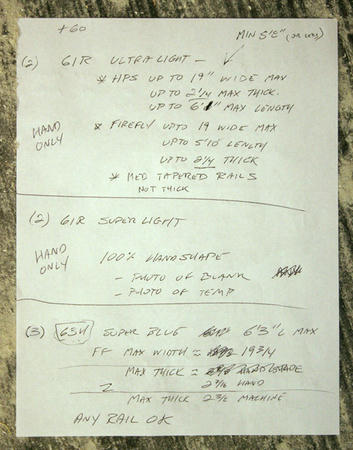 +60
MIN 5'8" (OR LESS)
(2) 61R ULTRALIGHT -
* HPS UP TO 19" WIDE MAX
UP TO 2 1/4 MAX THICK.
UP TO 6' MAX LENGTH
HAND ONLY
* FIREFLY UPTO 19 WIDE MAX
UPTO 5'10" LENGTH
UPTO 2 1/4 THICK
* MED TAPERED RAILS
NOT THICK
(2) 61R SUPERLIGHT
HAND ONLY
100% HANDSHAPE
- PHOTO OF BLANK
- PHOTO OF TEMP
(3) 63H SUPER BLUE 6'3"L MAX
FF MAX WIDTH = 19 3/4
MAX THICK =
2 3/8 HAND
MAX THICK 2 3/8 MACHINE
ANY RAIL OK